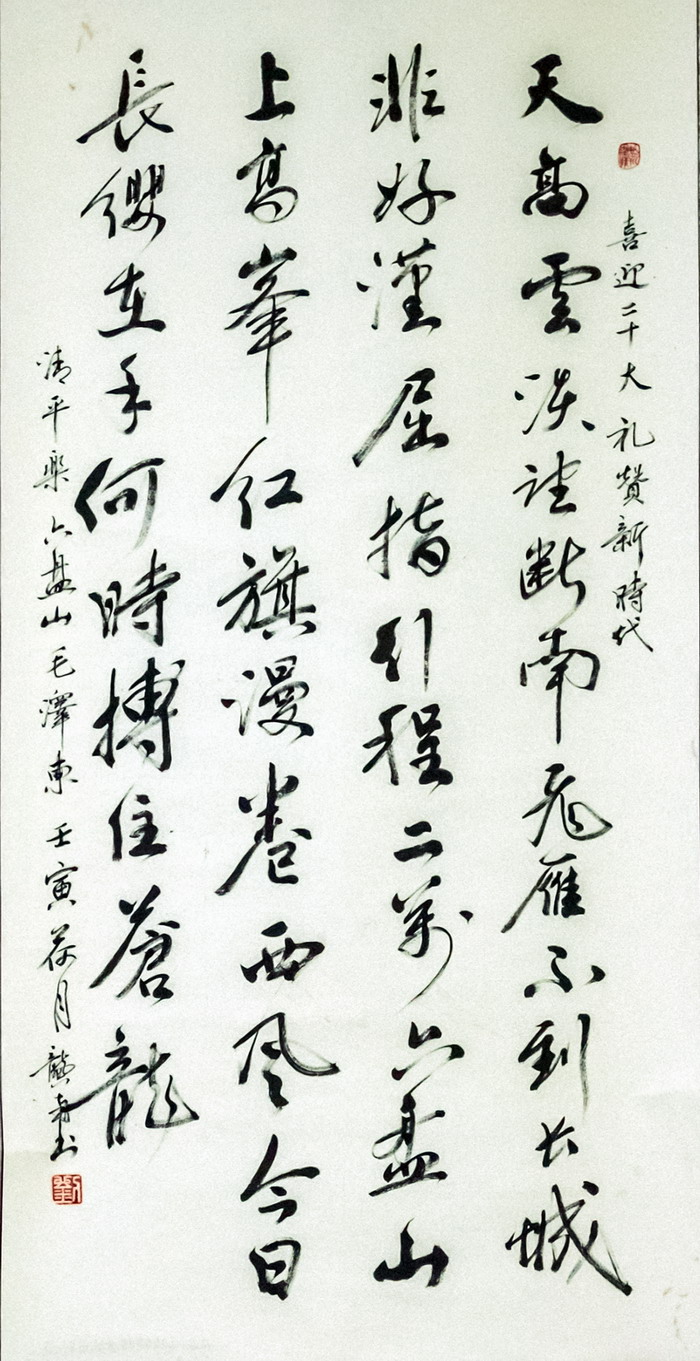 喜迎二十大礼赞新時代
天高雲淡望断南飛雁不到长城
非好漢屈指引程二萬六盘山
上高峯红旗漫卷西风今日
長缨在手何時搏住蒼龍
清平樂六盘山毛澤東壬寅荷月